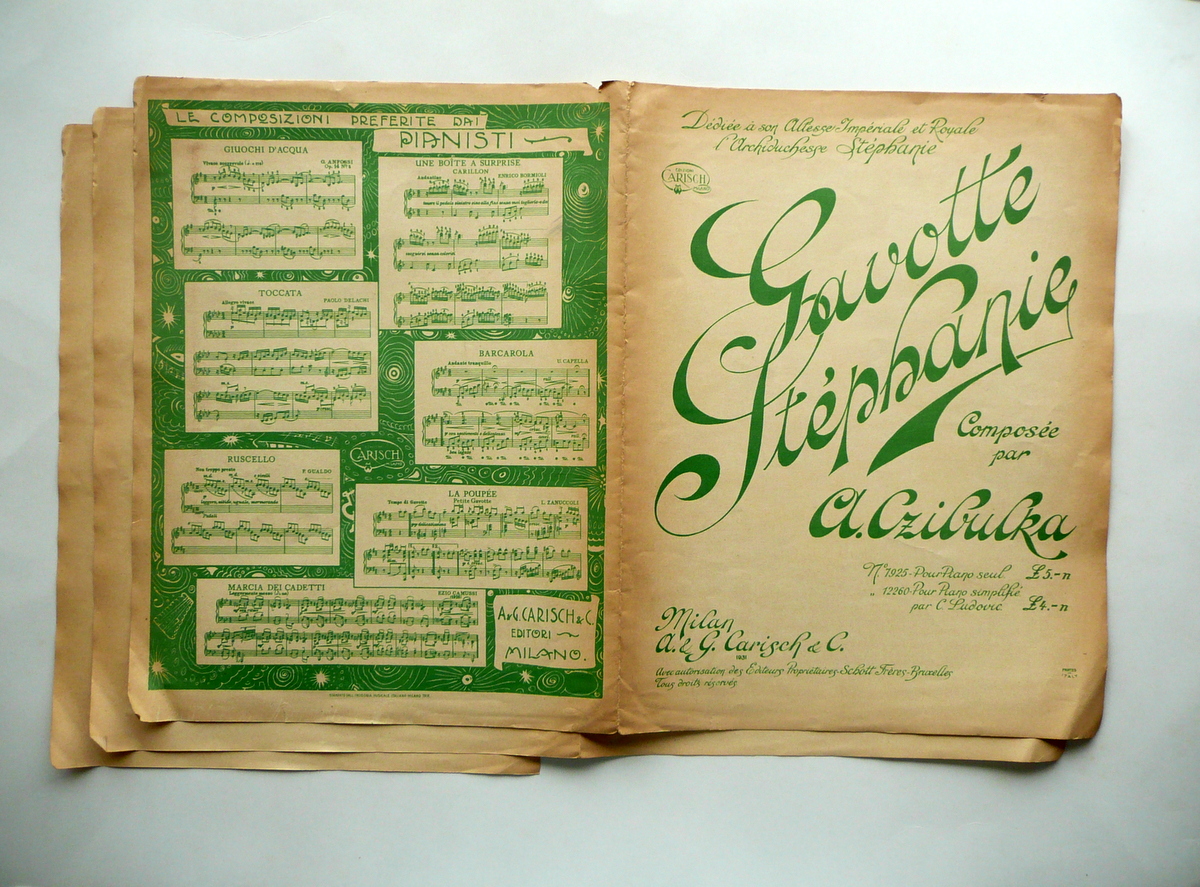 LE COMPOSIZIONI PREFERITE DAI
PIANISTI
GIUOCHI D'ACQUA
G. ANFOSSI
TOCCATA
Allegro vivace
PAOLO DELACHI
RUSCELLO
Non troppo presto
F. GUALDO
MARCIA DEI CADETTI
EZIO CAMUSSI
UNE BOÎTE A SURPRISE
CARILLON
Andantino
ENRICO BORMIOLI
BARCAROLA
Andante tranquillo
U. CAPELLA
CARISCH
LA POUPÉE
Petite Gavotte
Tempo di Gavotta
L. ZANUCCOLI
A. & G. CARISCH & C.
EDITORI
MILANO.
Dédiée à son Altesse Impériale et Royale
l'Archiduchesse Stéphanie
CARISCH
Gavotte
Stéphanie
Composée
par
A. Czibulka
Nº 7925-Pour Piano seul £ 5.-n
„ 12260-Pour Piano simplifié
par C. Ludovic £ 4.-n
Milan
A. & G. Carisch & C.
1931
Avec autorisation des Editeurs Propriétaires Schott Frères-Bruxelles
Tous droits réservés